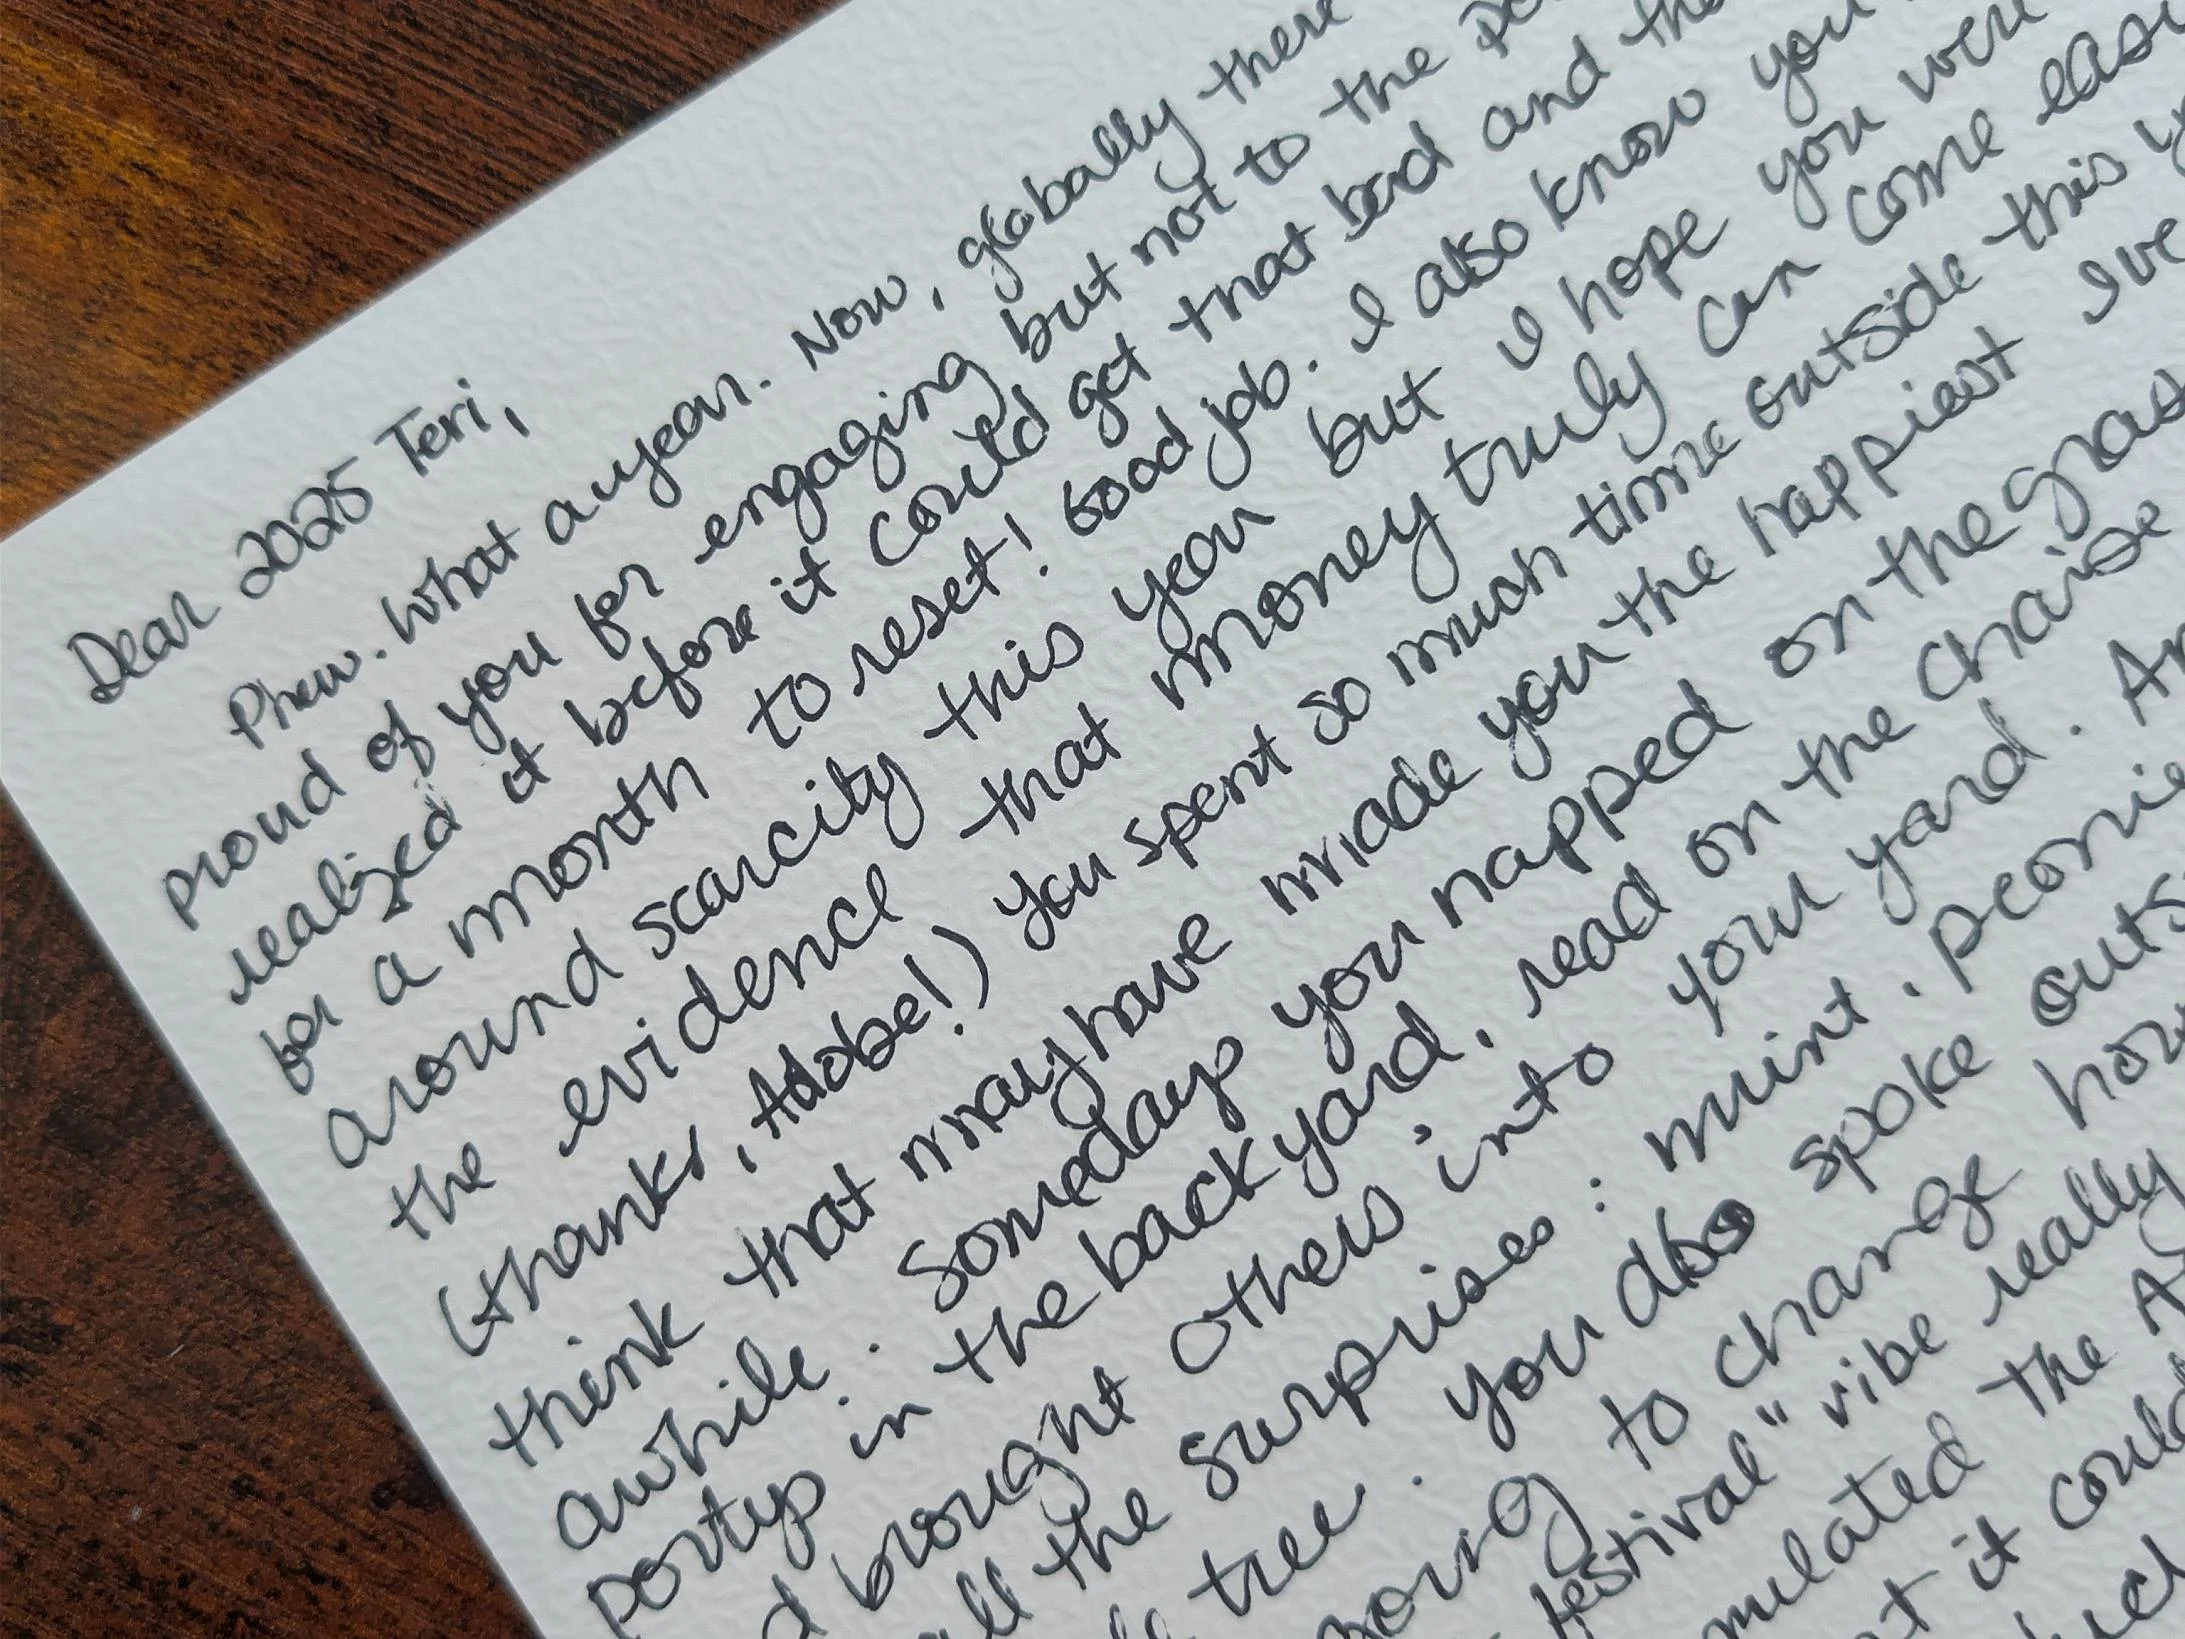 Dear 2025 Teri,
Phew. What a year. Now, globally there
proud of you for engaging but not to the
realized it before it could get that bad and the
for a month to reset! Good job. I also know you
around scarcity this year but I hope you were
the evidence that money truly can come easi
(thanks, Adobe!) You spent so much time outside this y
think that may have made you the happiest I've
awhile. Somedays you napped on the grass
in the backyard, read on the chaise
d brought others into your yard. An
ll the surprises: mint. peonie
tree. You also spoke outs
to change how
festival" vibe really
mulated the A
t it could